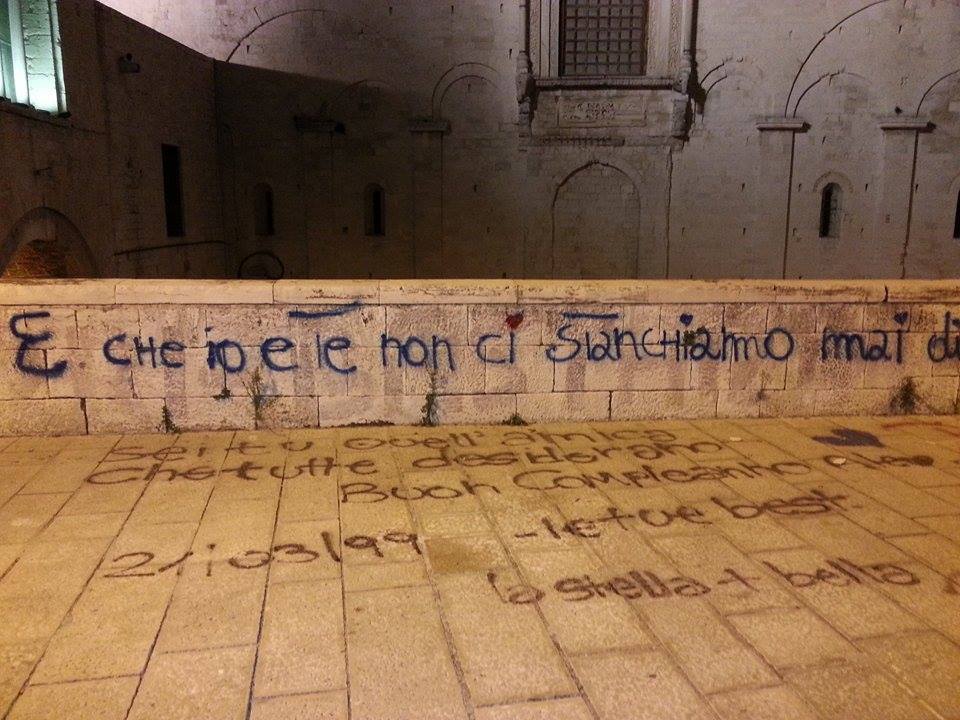 E CHE io e te non ci STanCHiamo mai di
sei tu quell'amica
Che tutte desiderano
Buon Compleanno
21/03/99 -le tue best-
la stella + bella